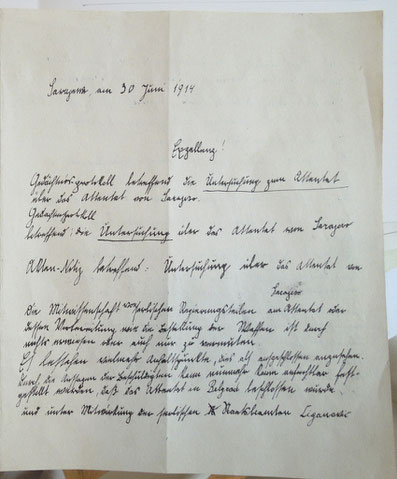 Sarajevo, am 30 Juni 1914
Exzellenz!
Gedächtnisprotokoll betreffend die Untersuchung zum Attentat
über das Attentat von Sarajevo.
Gedächtnisprotokoll
betreffend: die Untersuchung über das Attentat von Sarajevo
Akten-Notiz betreffend: Untersuchung über das Attentat von
Sarajevo
Die Mitwissenschaft von serbischen Regierungsteilen am Attentat oder
dessen Vorbereitung, sowie die Beistellung der Waffen ist durch
nichts erwiesen oder auch nur zu vermuten.
Es bestehen vielmehr Anhaltspunkte, dies als ausgeschlossen anzusehen.
Durch die Aussagen der Beschuldigten kann nunmehr kaum anfechtbar fest-
gestellt werden, daß das Attentat in Belgrad beschlossen wurde
und unter Mitwirkung der serbischen Staatsbeamten Ciganović